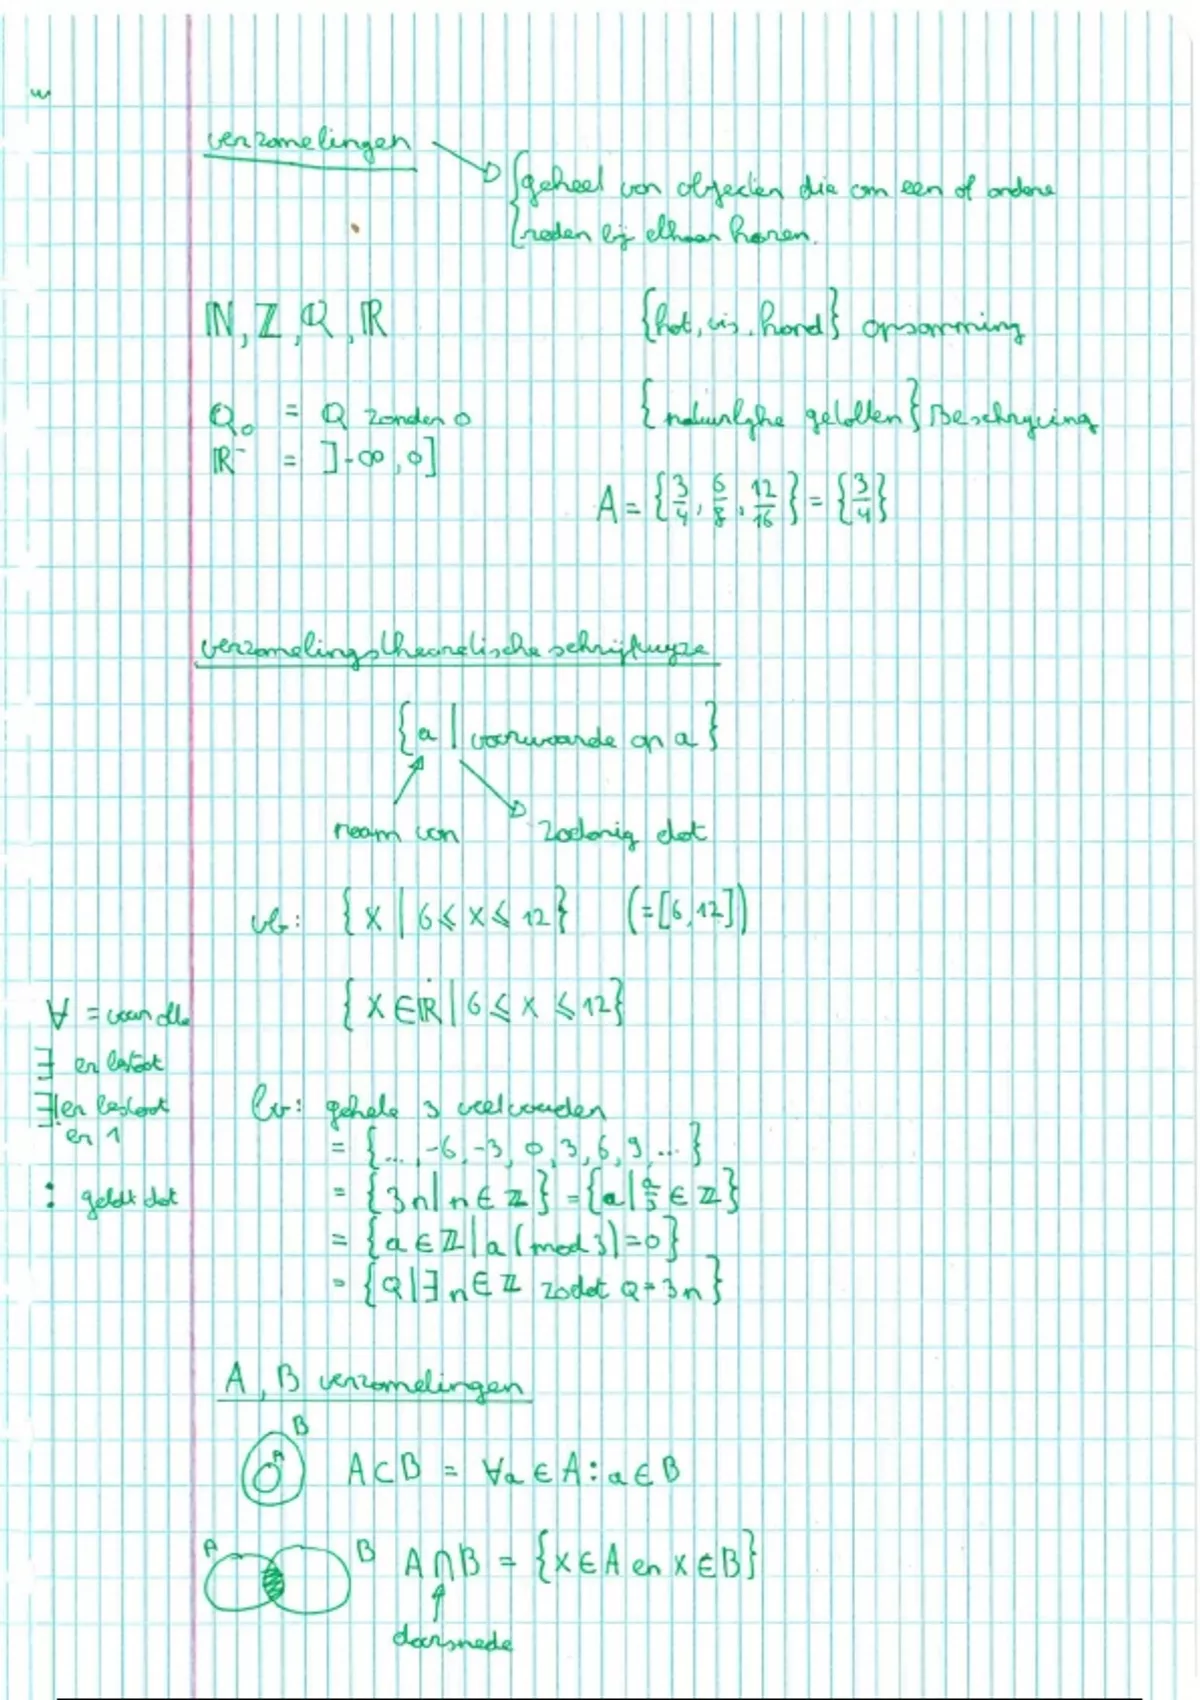 verzamelingen
geheel van objecten die om een of andere
reden bij elkaar horen.
ℕ, ℤ, ℚ, ℝ
{kat, vis, hond} opsomming
ℚ₀ = ℚ zonder 0
{natuurlijke getallen} Beschrijving
ℝ⁻ = ]-∞, 0]
A = {3/4, 6/8, 12/16} = {3/4}
verzamelingstheoretische schrijfwijze
{a | voorwaarde op a}
naam van
zodanig dat
vb: {x | 6 ⩽ x ⩽ 12} (= [6, 12])
{x ∈ ℝ | 6 ⩽ x ⩽ 12}
∀ = voor alle
∃ er bestaat
∃! er bestaat
er 1
: geldt dat
bv: gehele 3 veelvouden
= {..., -6, -3, 0, 3, 6, 9, ...}
= {3n | n ∈ ℤ} = {a | a/3 ∈ ℤ}
= {a ∈ ℤ | a (mod 3) = 0}
= {a | ∃n ∈ ℤ zodat a = 3n}
A, B verzamelingen
B
A
A ⊂ B = ∀a ∈ A : a ∈ B
A
B
A ∩ B = {x ∈ A en x ∈ B}
doorsnede